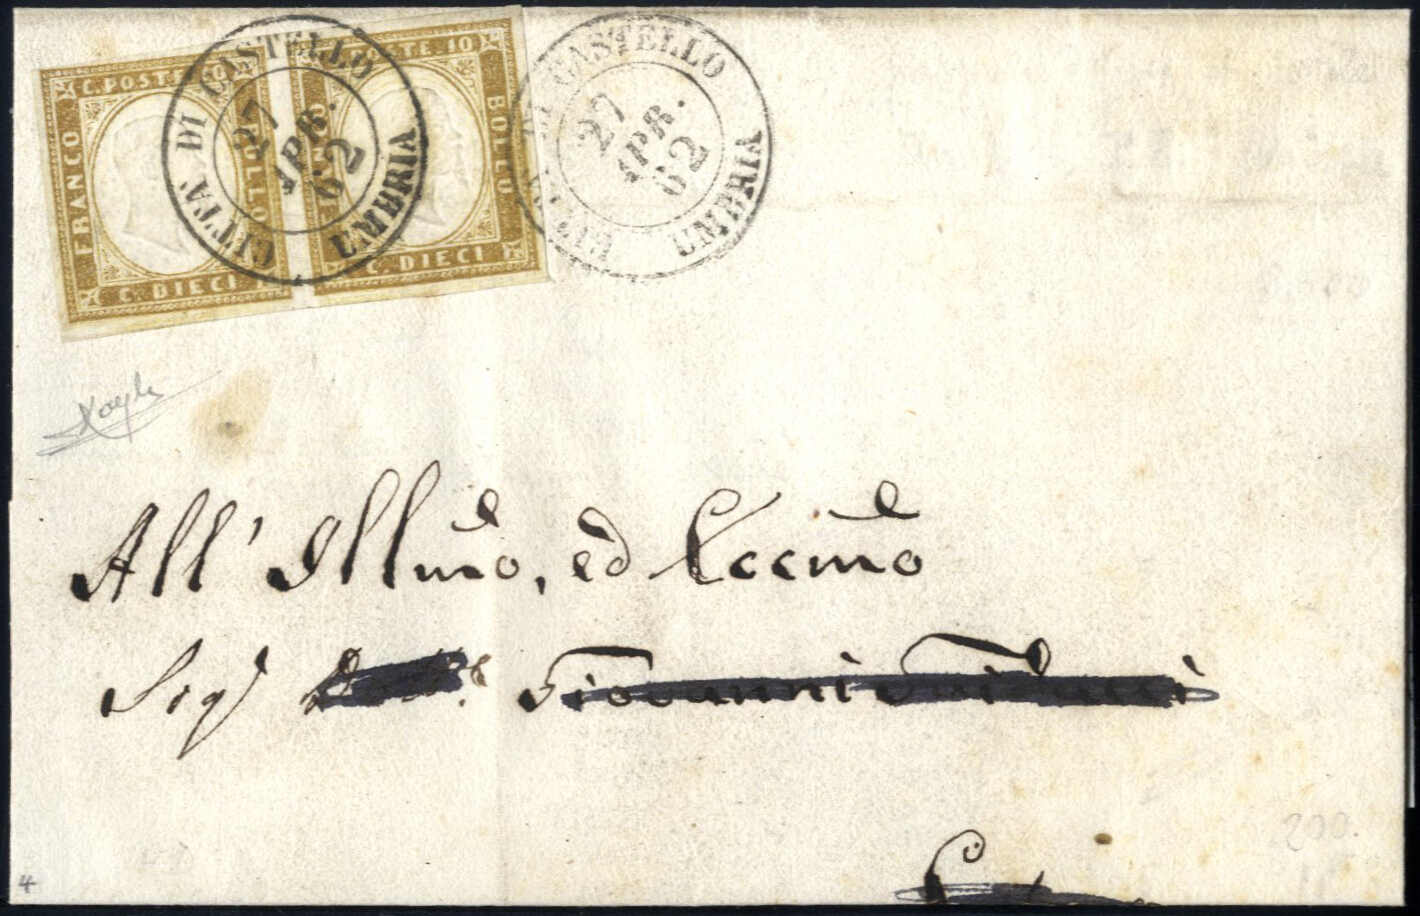 C. POSTE 10
FRANCO
BOLLO
C. DIECI
POSTE 10
BOLLO
C. DIECI
CITTA' DI CASTELLO
27
APR.
62
UMBRIA
DI CASTELLO
27
APR.
62
UMBRIA
All' Illmo, ed Eccmo
Sig.r Giovanni
200.
4